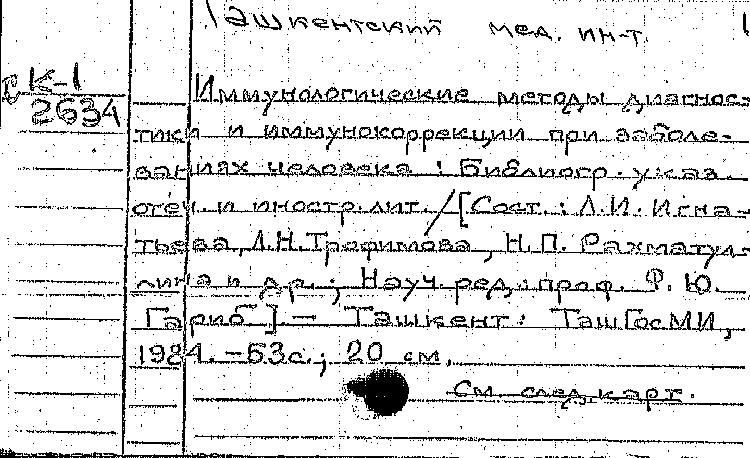 Ташкентский мед. ин-т.
К-1
2634
Иммунологические методы диагнос-
тики и иммунокоррекции при заболе-
ваниях человека : Библиогр. указ.
отеч. и иностр. лит. / [Сост. : Л.И. Игна-
тьева, Л.Н. Трофимова, Н.П. Рахматул-
лина и др. ; Науч. ред. : проф. Ф. Ю.
Гариб]. — Ташкент : ТашГосМИ,
1984. - 53с. ; 20 см.
См. след. карт.